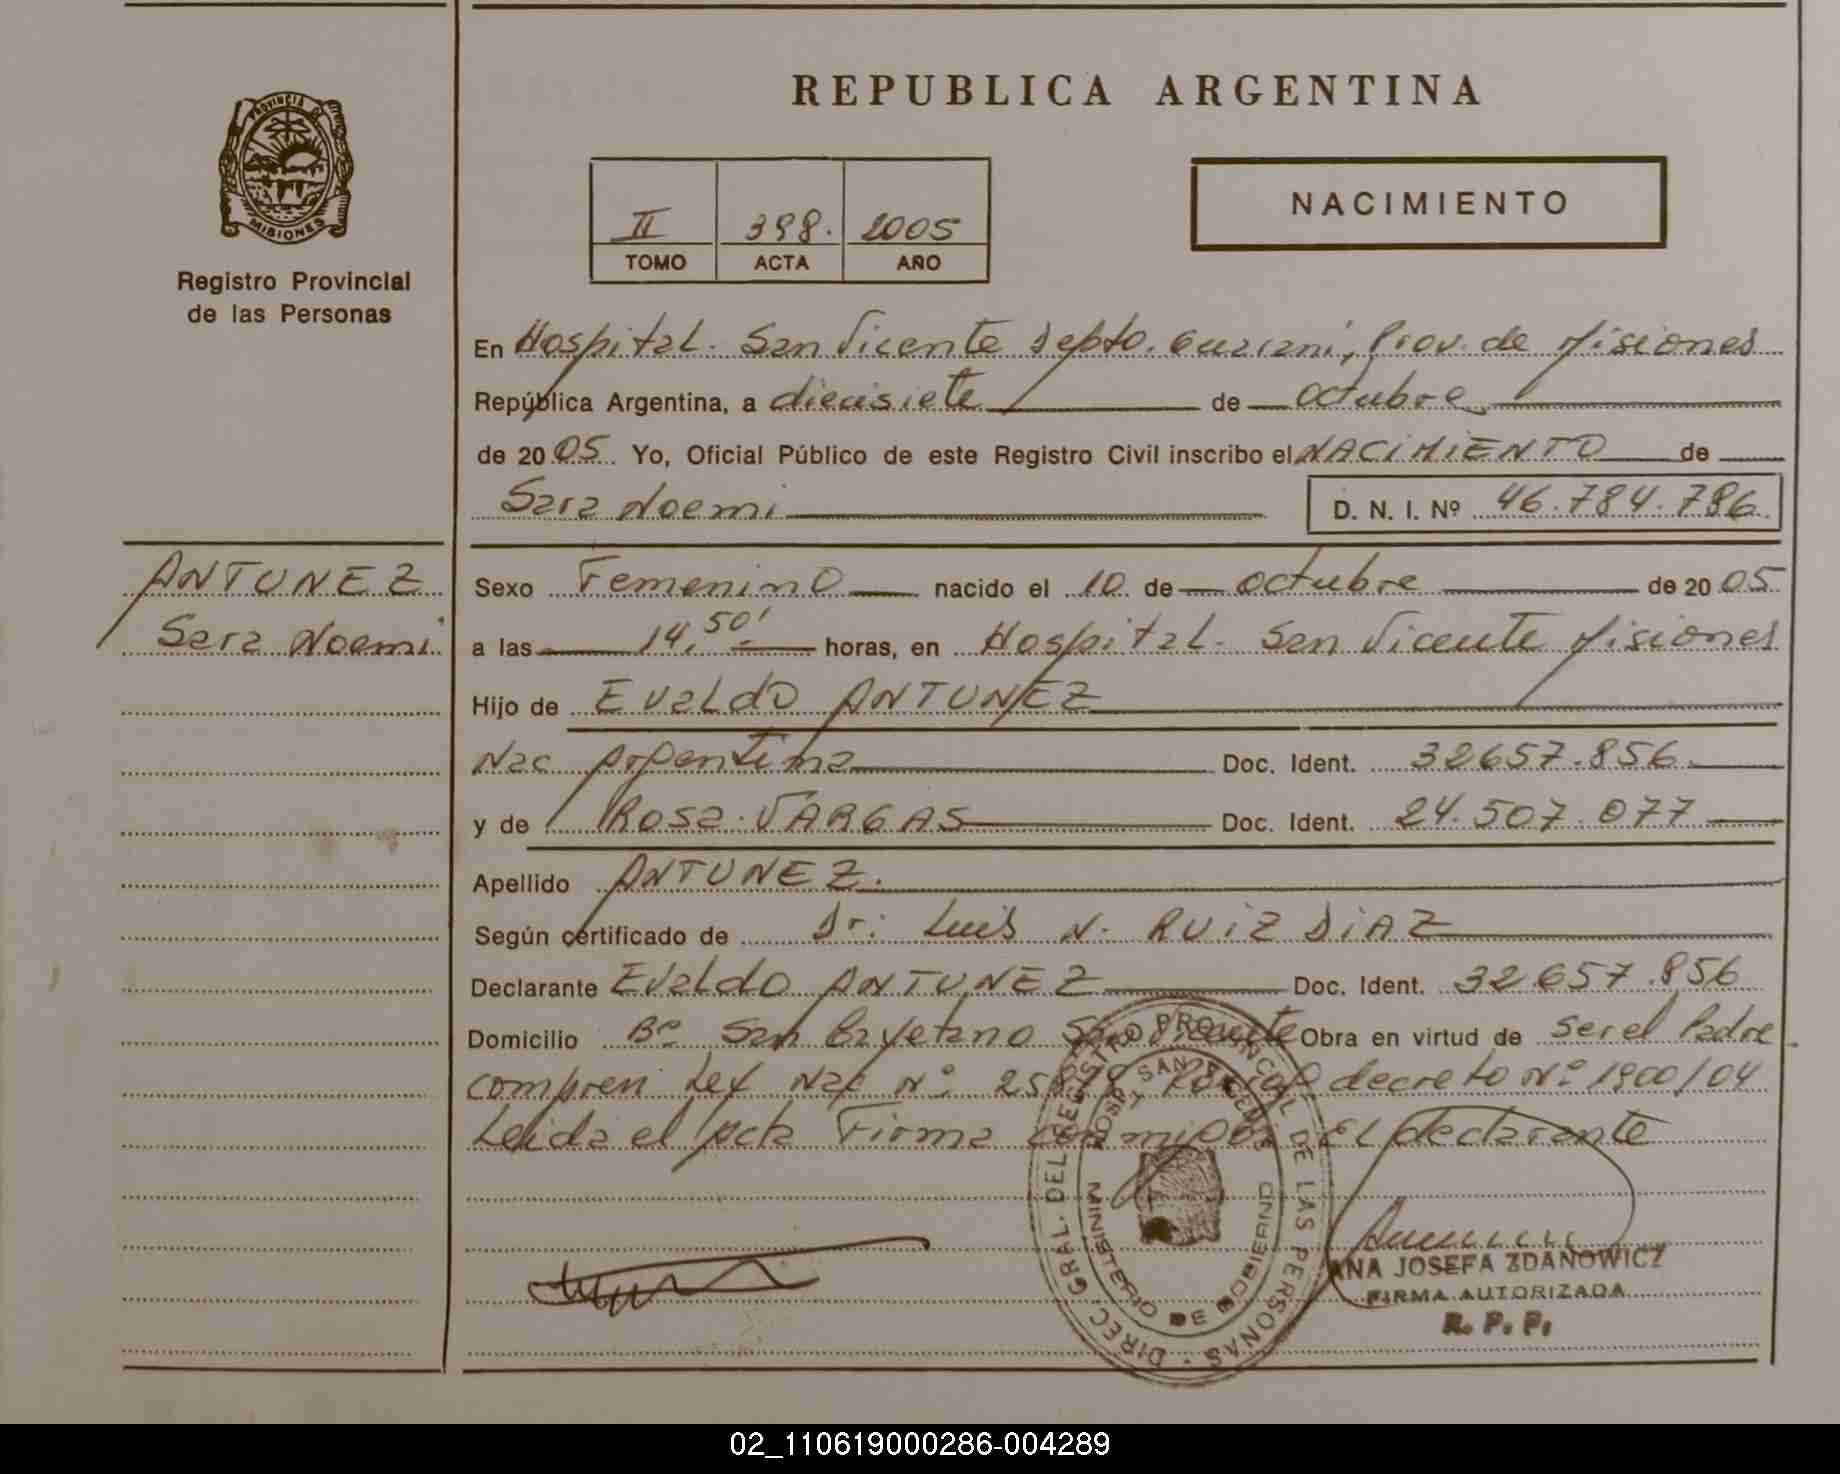 REPUBLICA ARGENTINA
PROVINCIA DE
MISIONES
Registro Provincial
de las Personas
II 398. 2005
TOMO ACTA AÑO
NACIMIENTO
En Hospital. San Vicente depto. Guarani, Prov. de Misiones
República Argentina, a diecisiete de octubre
de 2005 Yo, Oficial Público de este Registro Civil inscribo el NACIMIENTO de
Sara Noemi D. N. I. Nº 46.784.786
ANTUNEZ
Sara Noemi
Sexo Femenino nacido el 10 de octubre de 2005
a las 14,50' horas, en Hospital. San Vicente Misiones
Hijo de Evaldo ANTUNEZ
Nac Argentina Doc. Ident. 32657.856
y de Rosa VARGAS Doc. Ident. 24.507.077
Apellido ANTUNEZ.
Según certificado de Dr: Luis N. RUIZ DIAZ
Declarante Evaldo ANTUNEZ Doc. Ident. 32657.856
Domicilio Bº San Cayetano San Vicente Obra en virtud de ser el Padre
compren Ley Nac Nº decreto Nº 1900/04
Leida el acta Firma El declarante
DIREC. GRAL. DEL REGISTRO PROVINCIAL DE LAS PERSONAS
HOSP. SAN VICENTE
MINISTERIO DE GOBIERNO
ANA JOSEFA ZDANOWICZ
FIRMA AUTORIZADA
R. P. P.
02_110619000286-004289